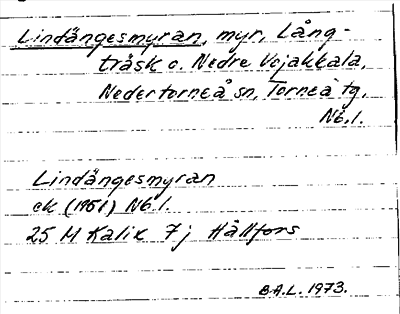 Lindängesmyran, myr, Lång-
träsk o. Nedre Vojakkala,
Nedertorneå sn, Torneå tg,
Nb.l.
Lindängesmyran
ek (1951) Nb.l.
25 M Kalix 7j Hällfors
B.A.L. 1973.